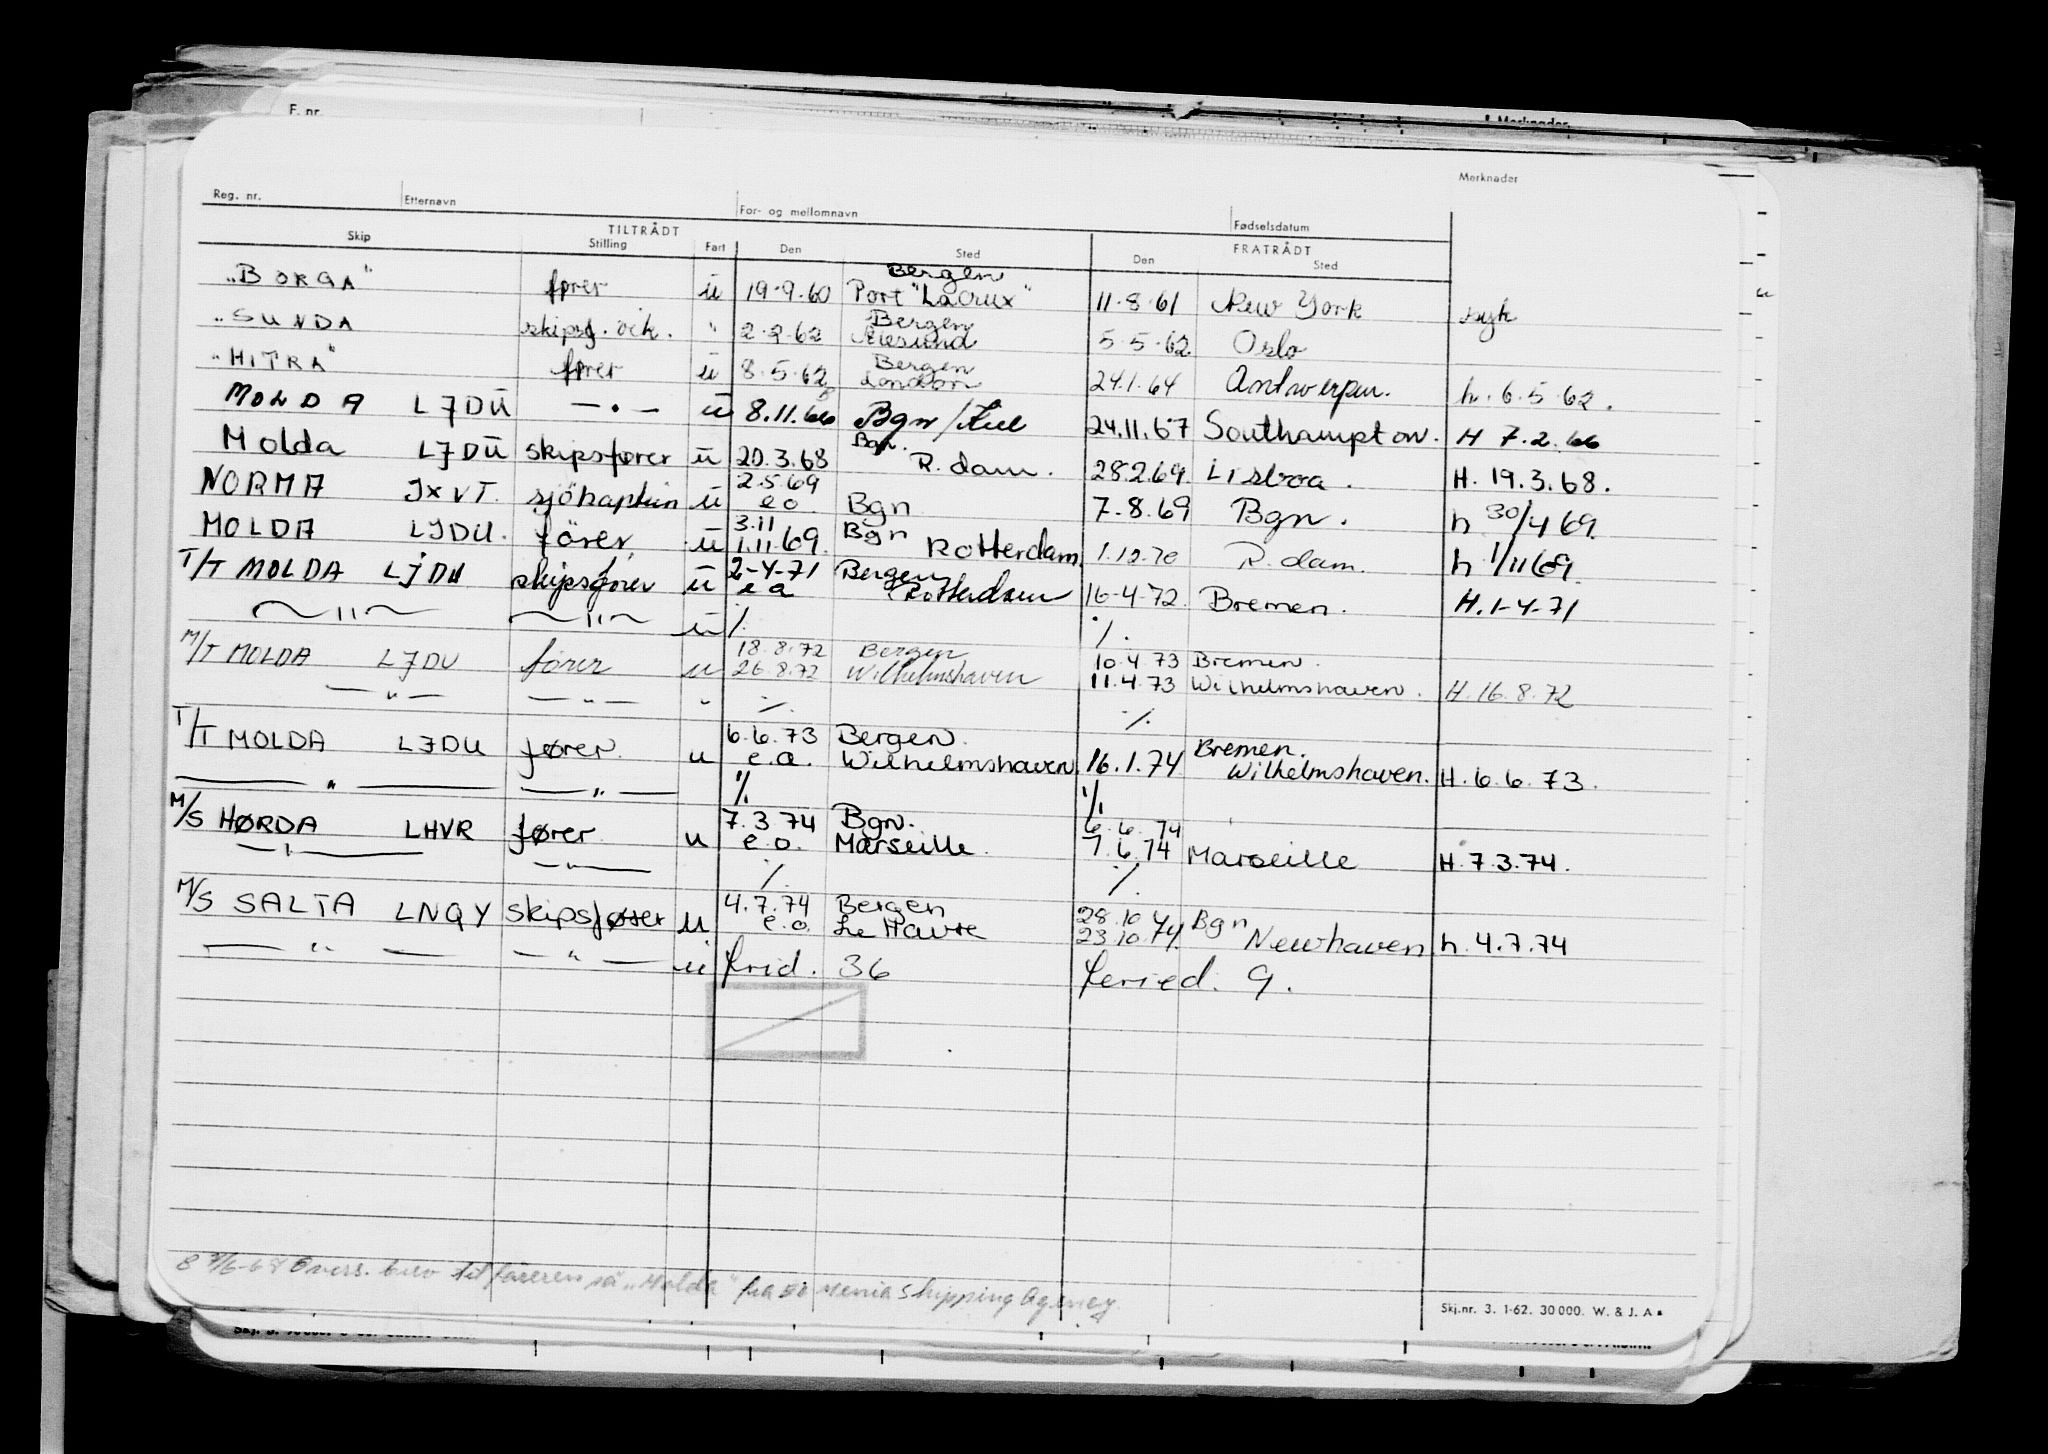 F. nr.
Merknader
Merknader
Reg. nr. Etternavn For- og mellomnavn Fødselsdatum
TILTRÅDT FRATRÅDT
Skip Stilling Fart Den Sted Den Sted
Bergen
"BORGA" fører u 19.9.60 Port "La Crux" 11.8.61 New York syk
Bergen
"SUNDA skipsf. vik. " 2.2.62 Ålesund 5.5.62 Oslo
Bergen
"HITRA" fører u 8.5.62 London 24.1.64 Antwerpen. h. 6.5.62.
MOLDA LJDU — " — u 8.11.66 Bgn/Kiel 24.11.67 Southampton. H 7.2.66
Bgn.
Molda LJDU skipsfører u 20.3.68 R.dam. 28.2.69. Lisboa. H. 19.3.68.
2.5.69
NORMA JXVT. sjökaptein u e o Bgn 7.8.69 Bgn. h 30/4 69.
3.11 Bgn
MOLDA LJDU. förer, u 1.11.69. Rotterdam. 1.12.70 R.dam. h 1/11 69.
2-4-71 Bergen
T/T MOLDA LJDU skipsfører u e a Rotterdam 16-4-72. Bremen. H. 1-4-71
— " — — " — u % %
18.8.72 Bergen 10.4.73 Bremen.
M/T MOLDA LJDU fører u 26.8.72 Wilhelmshaven 11.4.73 Wilhelmshaven. H. 16.8.72
— " — — " — " % %
6.6.73 Bergen. Bremen.
T/T MOLDA LJDU fører. u e.a. Wilhelmshaven 16.1.74 Wilhelmshaven. H. 6.6.73.
— " — — " — % %
7.3.74 Bgn. 6.6.74
M/S HØRDA LHVR fører. u e.o. Marseille. 7.6.74 Marseille H. 7.3.74.
— " — — " — % %
4.7.74 Bergen 28.10.74 Bgn
M/S SALTA LNQY skipsfører u e.o. Le Havre 23.10.74. Newhaven h. 4.7.74
— " — — " — u frid. 36 feried. 9.
"Molda" fra Shipping Agency
Skj.nr. 3. 1-62. 30000. W. & J. A.